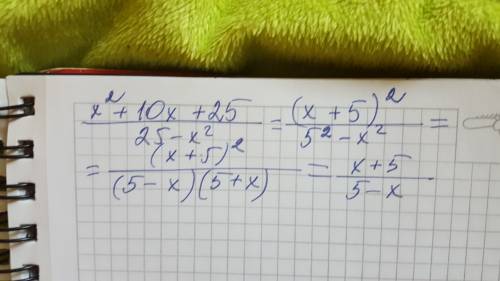 x² + 10x + 25 / 25 - x² = (x + 5)² / 5² - x² =
= (x + 5)² / (5 - x)(5 + x) = x + 5 / 5 - x